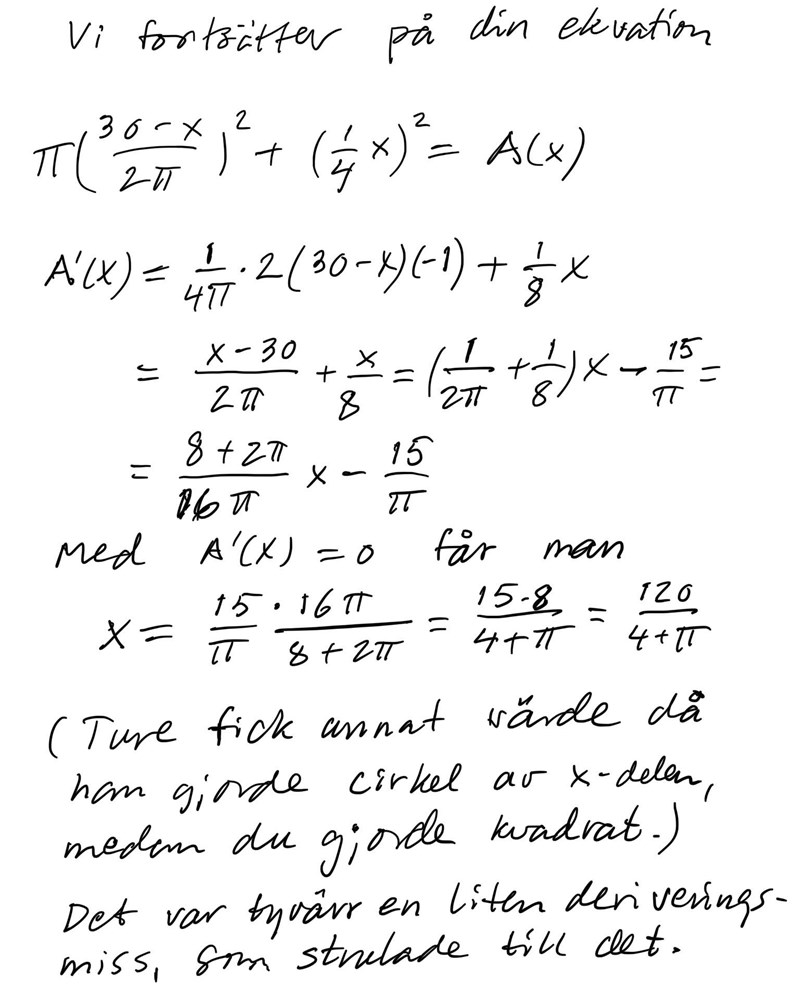 Vi fortsätter på din ekvation
π((30-x)/(2π))² + (1/4 x)² = A(x)
A'(x) = 1/(4π) · 2(30-x)(-1) + 1/8 x
= (x-30)/(2π) + x/8 = (1/(2π) + 1/8)x - 15/π =
= (8+2π)/(16π) x - 15/π
Med A'(x) = 0 får man
x = 15/π · 16π/(8+2π) = (15·8)/(4+π) = 120/(4+π)
(Ture fick annat värde då
han gjorde cirkel av x-delen,
medan du gjorde kvadrat.)
Det var tyvärr en liten deriverings-
miss, som strulade till det.